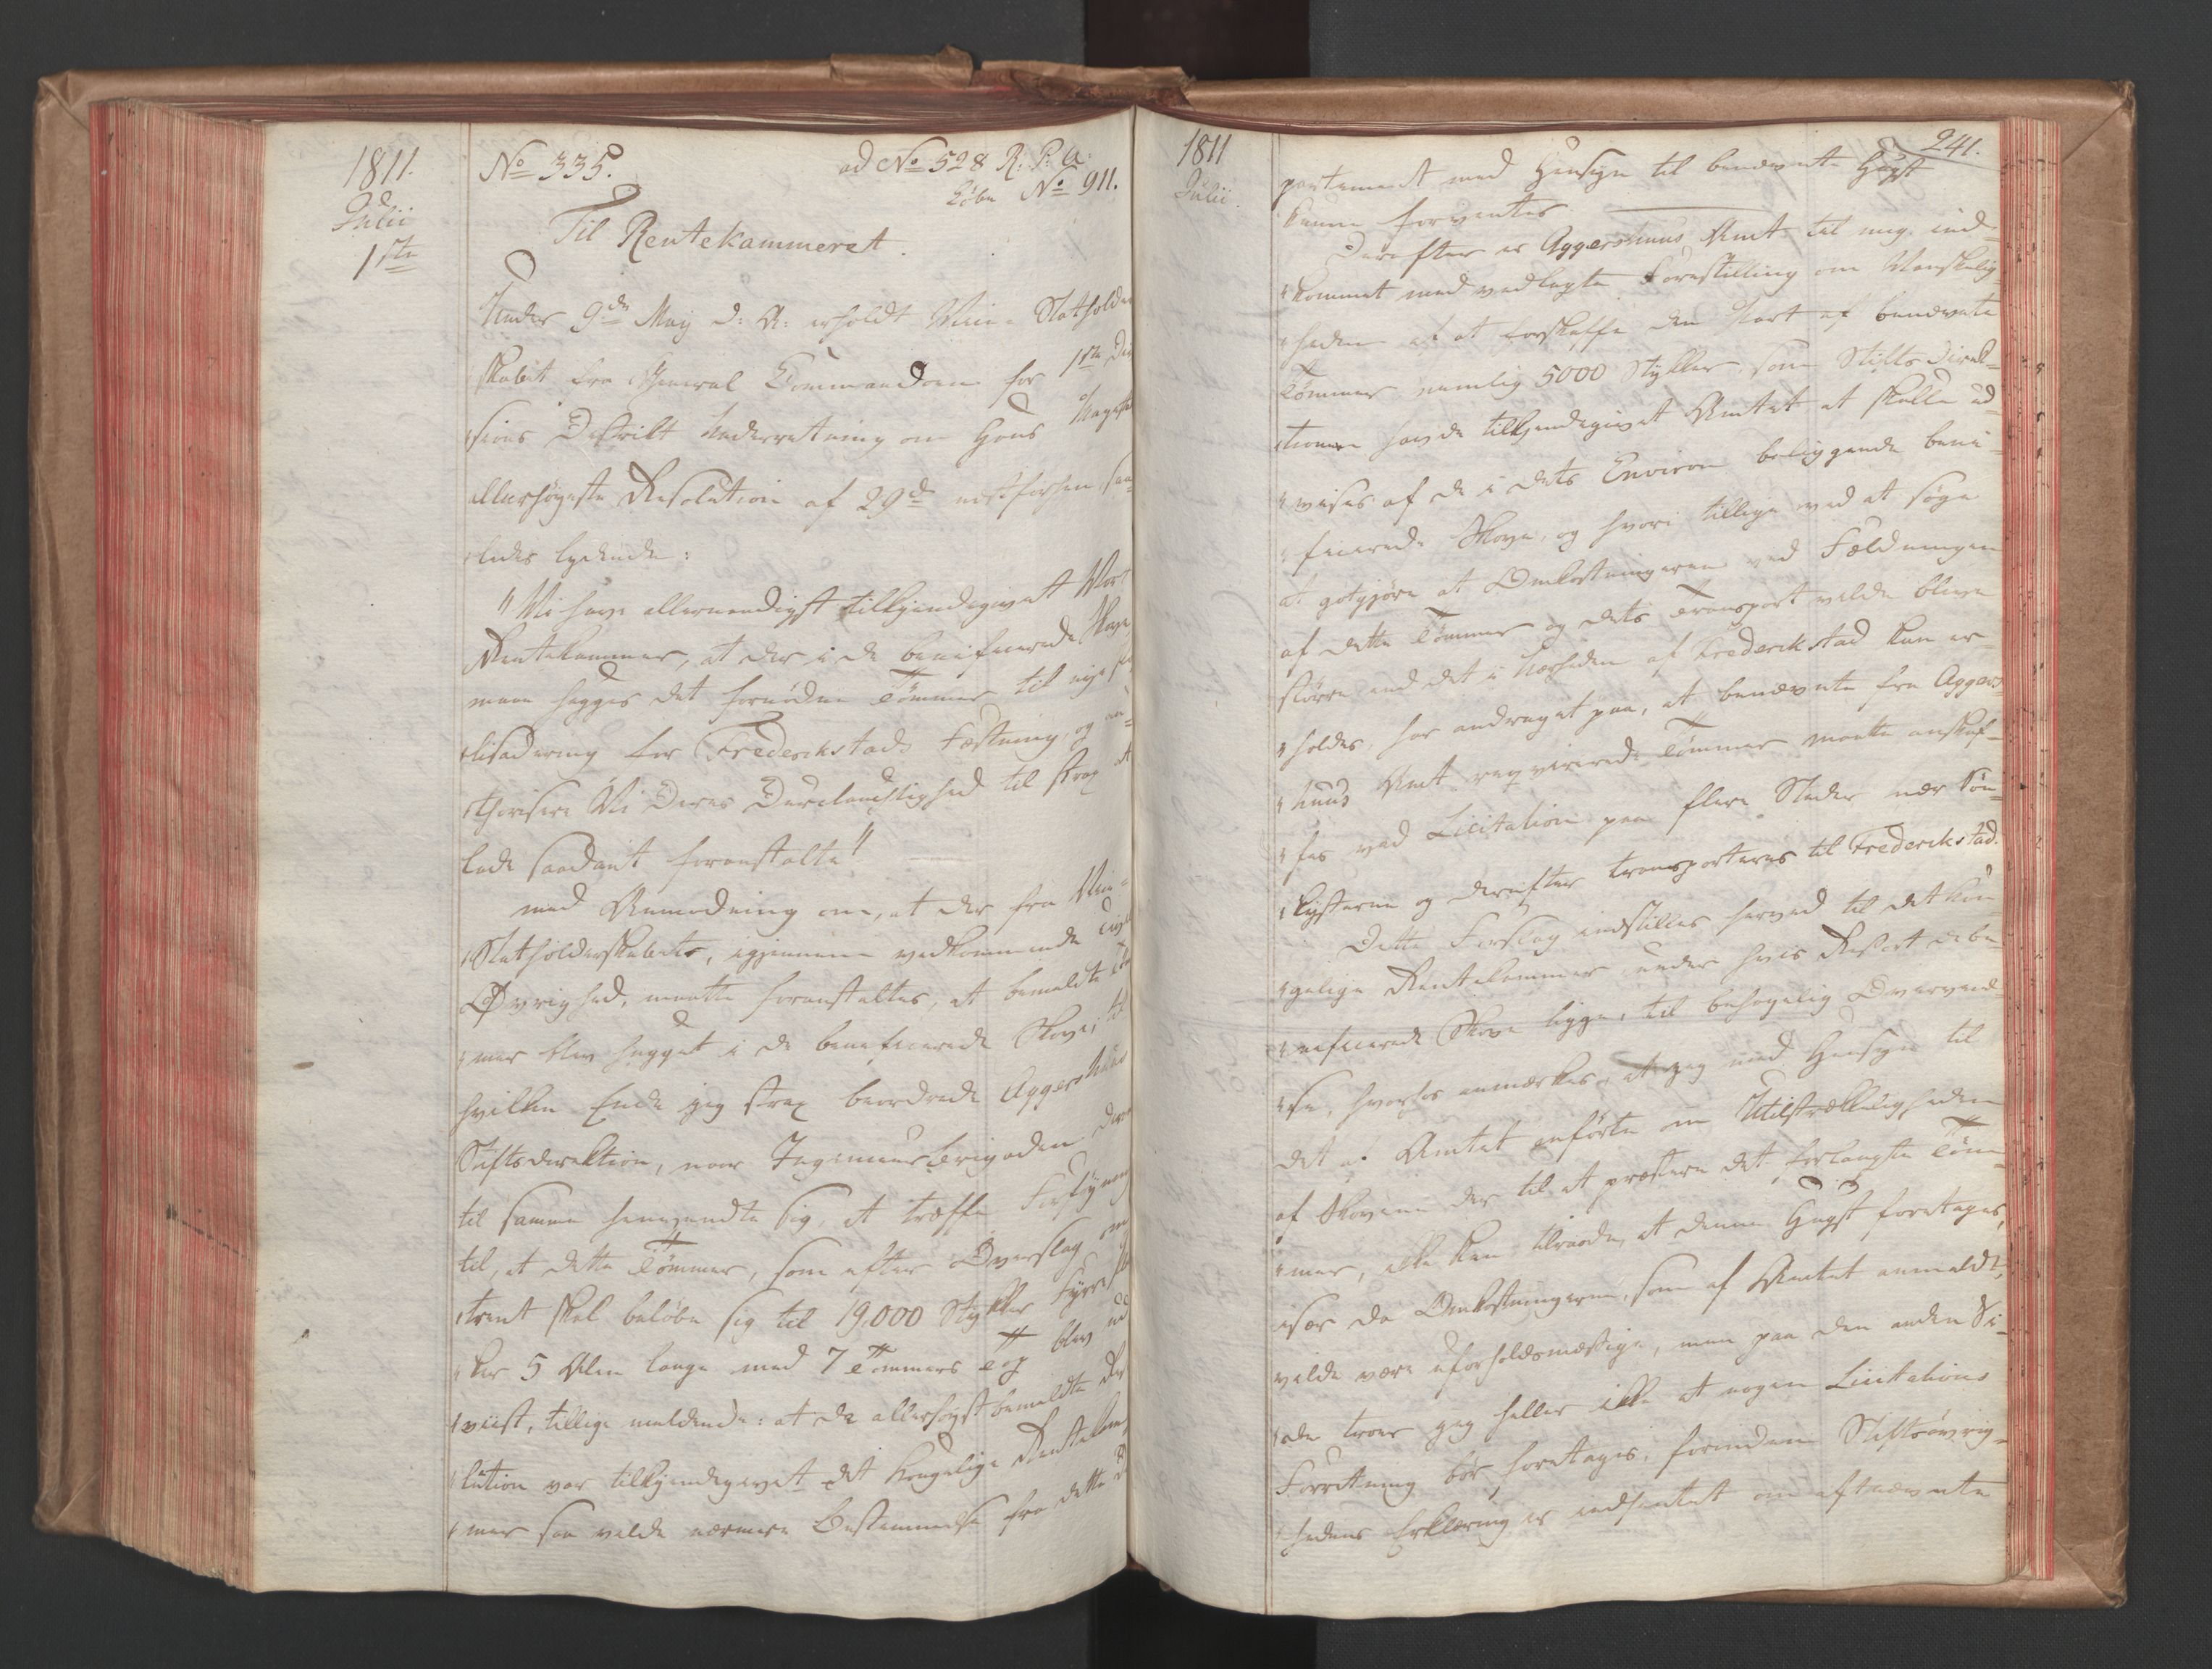 1811.
Julii
1ste
No 335.
ad No 528 R: P: A:
Løbe No 911.
Til Rentekammeret.
Under 9de May d: A: erholdt Vice-Statholder
skabet fra General Commandoen for 1ste Divi
sions District Underretning om Hans Majestæts
allerhøyeste Resolution af 29de næstforhen, saa-
ledes lydende:
"Vi have allernaadigst tilkjendegivet Vort
Rentekammer, at der i de beneficerede Skove
maae hugges det fornødne Tømmer til nye Pa
lisadering for Frederikstads Fæstning, og au-
thorisere Vi Deres Durchlauchtighed til strax at
lade saadant foranstalte"
med Anmodning om, at der fra Vice-
Statholderskabets, igjennem vedkommende Civil
Øvrighed, maatte foranstaltes, at bemeldte Tøm
mer blev hugget i de beneficerede Skove; til
hvilken Ende jeg strax beordrede Aggershuus
Stiftsdirektion, naar Ingenieurbrigaden derom
til samme henvendte sig, at træffe Føyning
til, at dette Tømmer, som efter Overslag om
trent skal beløbe sig til 19,000 Stykker Fyrestok
ker 5 Alen lange med 7 Tommers Top blev ud
viist, tillige meldende: at da allerhøyst bemeldte Reso
lution var tilkjendegivet det kongelige Rentekam
mer saa vilde nærmere Bestemmelse fra dette De
1811
Julii.
241.
partement med Hensyn til benævnte Hugst
kunne forventes.
Derefter er Aggershuus Amt til mig ind-
kommet med vedlagte Forestilling om Vanskelig
heden af at forskaffe den Part af benævnte
Tømmer nemlig 5000 Stykker, som Stifts Direk-
tionen havde tilkjendegivet Amtet at skulle ud-
vises af de i dets Environ beliggende bene-
ficerede Skove, og hvori tillige ved at søge
at godtgjøre at Omkostningerne ved Fældningen
af dette Tømmer og dets Transport vilde blive
større end det i Nærheden af Frederikstad kan er-
holdes, har andraget paa, at benævnte fra Aggers-
huus Amt requirerede Tømmer maatte anskaf-
fes ved Licitation paa flere Steder nær Søe-
kysterne og derefter transporteres til Frederikstad.
Dette Forslag indstilles herved til det kon-
gelige Rentekammer under hvis Resort de be
neficerede Skove ligge, til behagelig Overveiel-
se, hvorhos anmærkes, at jeg med Hensyn til
det af Amtet anførte om Utilstrækkeligheden
af Skovene der til at præstere det forlangte Tøm-
mer, ikke kan tilraade, at denne Hugst foretages,
især da Omkostningerne, som af Amtet anmeldt,
vilde være uforholdsmæssige, men paa den anden Si-
de troer jeg heller ikke at nogen Licitations
Forretning bør foretages, forinden Stiftsøvrig-
hedens Erklæring er indhentet om oftnævnte